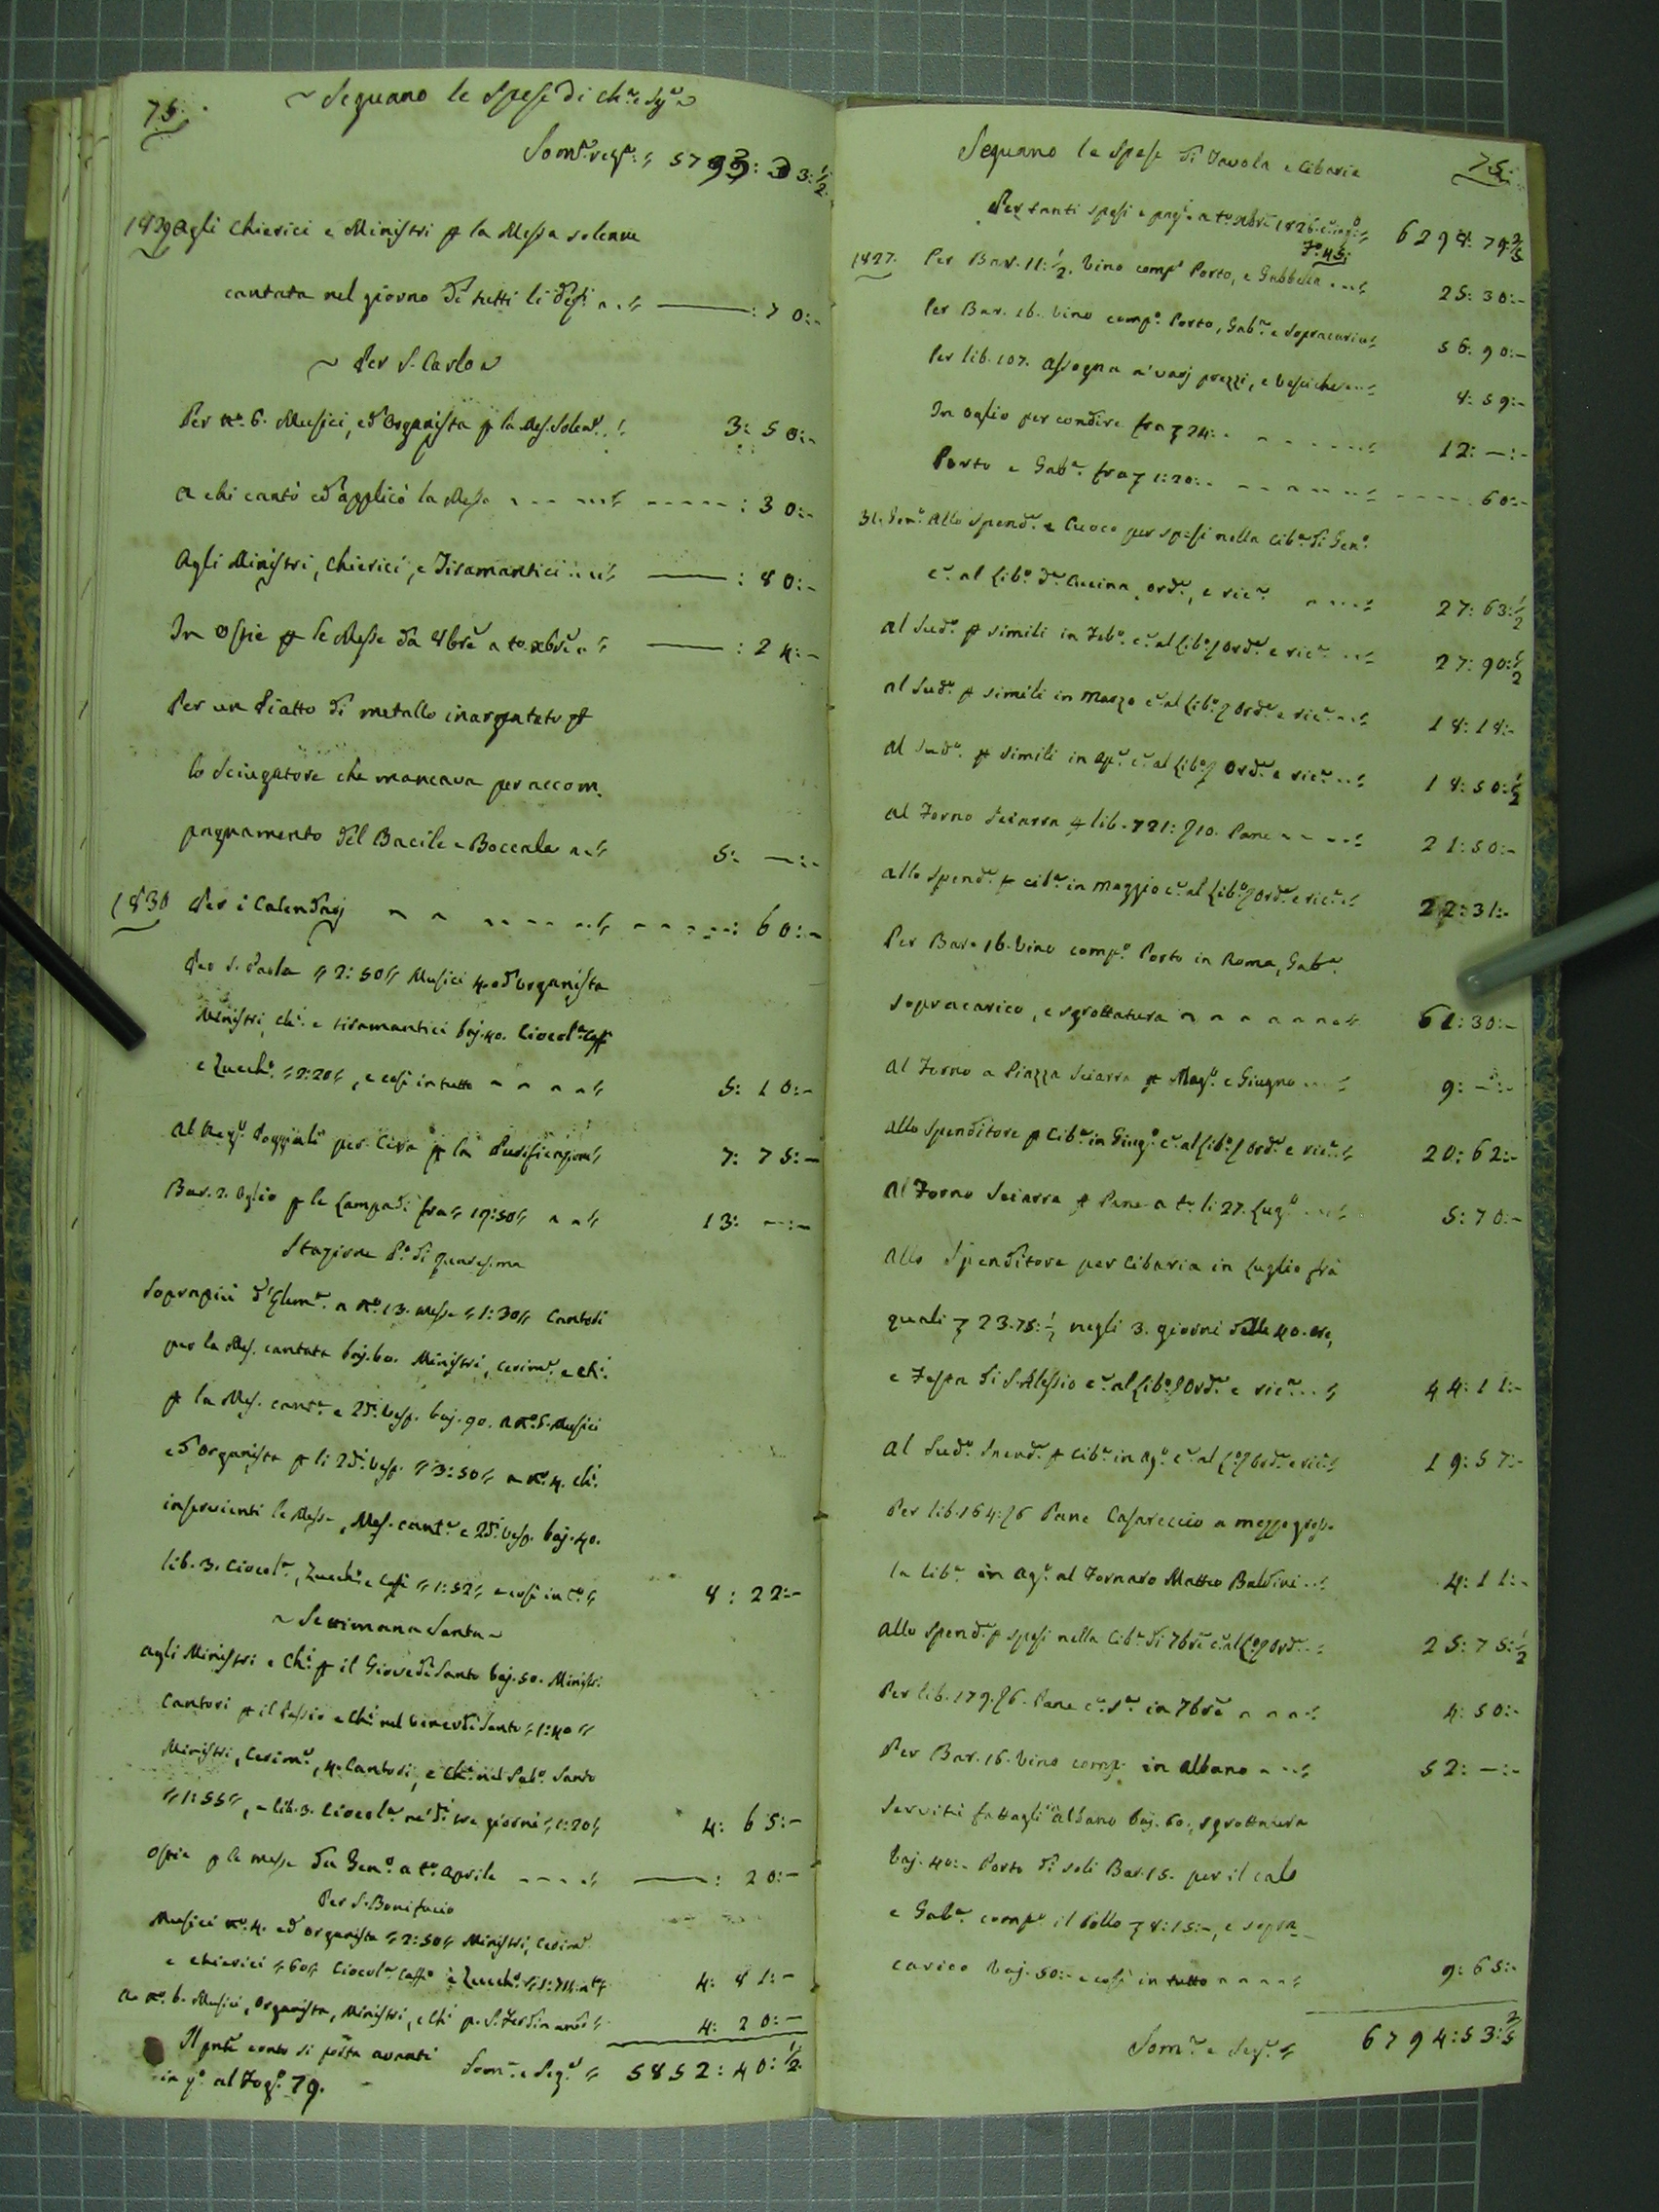 75.
~ Seguano le Spese di Ch.ª e Sg.ª ~
Som.ª retr.ª :" 5793: 33:½
1829 Agli Chierici e Ministri p la Messa solenne
cantata nel giorno di tutti li Defi ~ .." ——— : 70:-
~ Per S. Carlo ~
Per n.º 6. Musici, ed Organista p la Mes. Solen.. 3: 50:-
a chi cantò ed applicò la Messa . - - - " - - - - - : 30:-
Agli Ministri, Chierici, e Tiramantici .. " ——— : 80:-
In Ostie p le Messe da 8bre a to. xbre " ——— : 24:-
Per un Piatto di metallo inargatato p
lo sciugatore che mancava per accom.
pagnamento del Bacile e Boccale ~ " 5: —:-
1830 Per i Calendarj ~ ~ - - - - " - - - - - : 60:-
Per S. Paola " 2: 50 " Musici 4. ed Organista
Ministri, Chi. e tiramantici baj. 40. Ciocol.ª Caff
e Zucch.º " 2:20 ", e così in tutto ~ ~ ~ ~ " 5: 10:-
Al Neg.º Poggioli per Cera p la Purificazione " 7: 75:-
Bar. 2. Oglio p le Lampadi fra " 19:50 " ~ ~ " 13: —:-
Stazione P.ª di Quaresima
Soprapiù d'Elem.ª a n.º 13. Messe " 1:30 " Cantori
per la Mes. cantata baj. 60. Ministri, Cerim.e e Chi.
p la Mes. cant.ª e 2di. Vesp. baj. 90. a n.º 5. Musici
ed Organista p li 2di. Vesp. " 3:50 " a n.º 4. Chi.
inservienti le Messe, Mes. cant.ª e 2di. Vesp. baj. 40.
lib. 3. Ciocol.ª, Zucch. e Caffè " 1:52 " e così in t.º " 8: 22:-
~ Settimana Santa ~
Agli Ministri e Chi. p il Giovedì Santo baj. 50. Ministri
Cantori p il Passio e Chi. nel Venerdì Santo " 1:40 "
Ministri, Cerim.e, 4. Cantori, e Chi. nel Sab.º Santo
" 1:55 ", e lib. 3. Ciocol.ª ne' di tre giorni " 1:20 " 4: 65:-
Ostie p le messe da Gen.º a t.º Aprile - - - - " ——— : 20:-
Per S. Bonifacio
Musici n.º 4. ed Organista " 2:50 " Ministri, Cerim.e
e Chierici " 60 " Ciocol.ª Caffè e Zucch.º " 1:71 " 4: 81:-
A n.º 6. Musici, Organista, Ministri, e Chi p. S. Ferdinando " 4: 20:-
Il pnte conto si porta avanti Som.ª e Seg.ª " 5852: 40:½
in q.º al Fogº. 79.
75.
Seguano le Spese di Tavola e Cibarie
Per tanti spesi e pag.ti a to. Xbre 1826. 6298: 79:⅗
Fº. 45:
1827. Per Bar. 11:½. Vino comp.º Porto, e Gabbella ..." 25: 30:-
Per Bar. 16. Vino comp.º Porto, Gab.ª e Sopracarico " 56: 90:-
Per lib. 107. Assogna a' varj prezzi, e Vesciche ..." 8: 59:-
In Oglio per condire fra 24:. - - - - - " 12: —:-
Porto e Gab.ª fra 1:20:. - - - - " - - - - 60:-
31. Gen.º Allo Spend.e e Cuoco per spesi nella Cib.ª di Gen.º
c.e al Lib.º d.ª Cucina, ord.e, e ric.ª - - - " 27: 63:½
Al Sud.º p simili in Feb.º c.e al Lib.º Ord.e e ric.ª ..." 27: 90:½
Al Sud.º p simili in Marzo c.e al Lib.º Ord.e e ric.ª ..." 18: 18:-
Al Sud.º p simili in Ap.e c.e al Lib.º Ord.e e ric.ª ..." 18: 50:½
Al Forno Sciarra p lib. 721: 10. Pane - - - " 21: 50:-
Allo Spend.e p cib.ª in Maggio c.e al Lib.º Ord.e e ric.ª " 22: 31:-
Per Bar. 16. Vino comp.º Porto in Roma, Gab.ª
sopracarico, e sgrottatura ~ ~ ~ ~ ~ ~ " 61: 30:-
Al Forno a Piazza Sciarra p Mag.º e Giugno ..." 9: —:-
Allo Spenditore p Cib.ª in Giug.º c.e al Lib.º Ord.e e ric.ª " 20: 62:-
Al Forno Sciarra p Pane a to. li 27. Lug.º ..." 5: 70:-
Allo Spenditore per Cibaria in Luglio fra
quali 23.75:½ negli 3. giorni delle 40. ore,
e Festa di S. Alessio c.e al Lib.º Ord.e e ric.ª ..." 44: 11:-
Al Sud.º Spend.e p cib.ª in Ag.º c.e al L.º Ord.e e ric.ª " 19: 57:-
Per lib. 164: 6 Pane Casareccio a mezzo grosso
la lib.ª in Ag.º al Fornaro Matteo Baldini .." 4: 11:-
Allo Spend.e p spesi nella Cib.ª di 7bre c.e al L.º Ord.e .." 25: 75:½
Per lib. 179. 6. Pane c.e s.ª in 7bre ~ ~ ~ " 4: 50:-
Per Bar. 16. Vino comp. in Albano ~ .." 52: —:-
Serviti fattagli Albano baj. 60., sgrottatura
baj. 40:- Porto di soli Bar. 15. per il calo
e Gab.ª comp.º il Bollo 8:15:-, e sopra-
carico baj. 50:- e così in tutto ~ ~ ~ " 9: 65:-
Som.ª e Seg.ª " 6794: 53:⅗